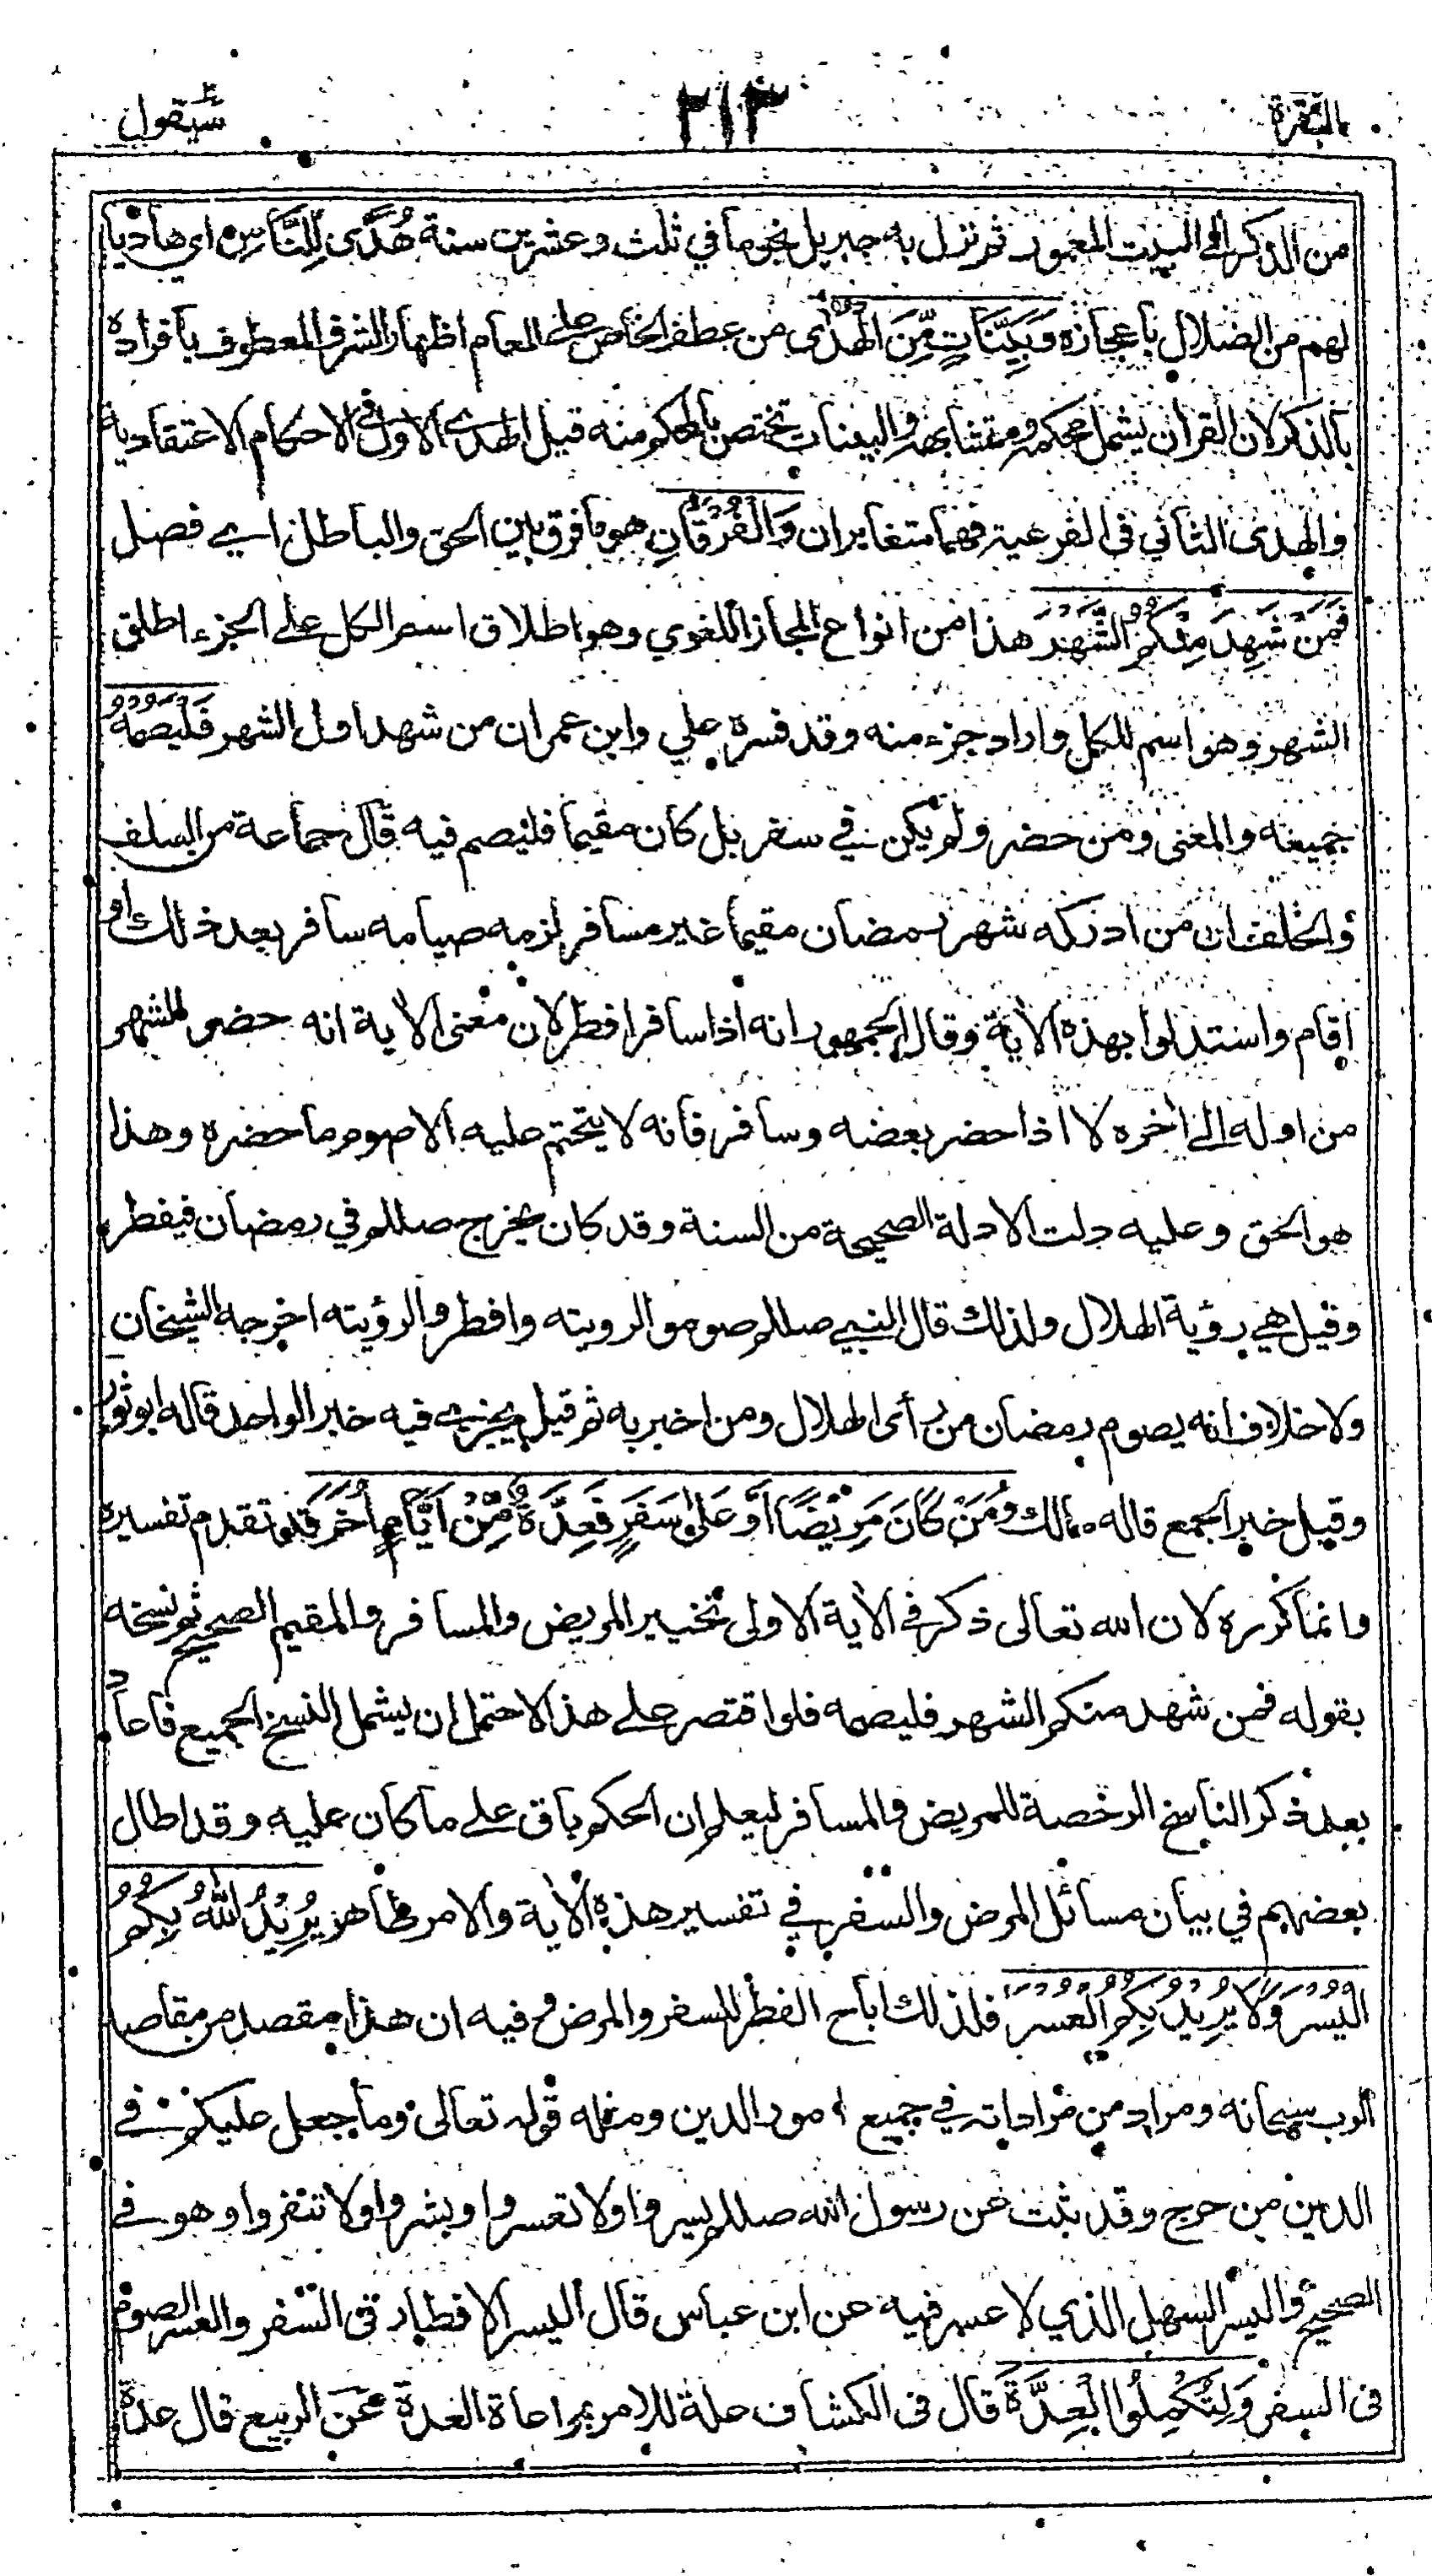 البقرة ٢١٣ سيقول
من الذكر الى البيت المعمور ثم نزل به جبريل نجوما في ثلث وعشرين سنة هُدًى لِلنَّاسِ اي هاديا
لهم من الضلال باعجازه وَبَيِّنَاتٍ مِّنَ الْهُدٰى من عطف الخاص على العام اظهار الشرف المعطوف بافراده
بالذكر لان القرآن يشمل محكمه ومتشابهه والبينات تختص بالمحكم منه قيل الهدى الاول في الاحكام الاعتقادية
والهدى الثاني في الفرعية فهما متغايران وَالْفُرْقَانِ هو ما فرق بين الحق والباطل اي فصل
فَمَنْ شَهِدَ مِنْكُمُ الشَّهْرَ هذا من انواع المجاز اللغوي وهو اطلاق اسم الكل على الجزء اطلق
الشهر وهو اسم للكل واراد جزء منه وقد فسره علي وابن عمر ان من شهد اول الشهر فَلْيَصُمْهُ
جميعه والمعنى ومن حضر ولم يكن في سفر بل كان مقيما فليصم فيه قال جماعة من السلف
والخلف ان من ادركه شهر رمضان مقيما غير مسافر لزمه صيامه سافر بعد ذلك او
اقام واستدلوا بهذه الآية وقال الجمهور انه اذا سافر افطر لان معنى الآية انه حضر الشهر
من اوله الى اخره لا اذا حضر بعضه وسافر فانه لا يتحتم عليه الا صوم ما حضره وهذا
هو الحق وعليه دلت الادلة الصحيحة من السنة وقد كان يخرج صللم في رمضان فيفطر
وقيل هي رؤية الهلال ولذلك قال النبي صللم صوموا لرويته وافطروا لرؤيته اخرجه الشيخان
ولا خلاف انه يصوم رمضان من رأى الهلال ومن اخبر به ثم قيل يجزي فيه خبر الواحد قاله ابو ثور
وقيل خبر الجمع قاله مالك وَمَنْ كَانَ مَرِيْضًا اَوْ عَلٰى سَفَرٍ فَعِدَّةٌ مِّنْ اَيَّامٍ اُخَرَ قد تقدم تفسيره
وانما كرره لان الله تعالى ذكر في الآية الاولى تخيير المريض والمسافر والمقيم الصحيح ثم نسخه
بقوله فمن شهد منكم الشهر فليصمه فلو اقتصر على هذا لاحتمل ان يشمل النسخ الجميع فاعاد
بعد ذكر الناسخ الرخصة للمريض والمسافر ليعلم ان الحكم باق على ما كان عليه وقد اطال
بعضهم في بيان مسائل المرض والسفر في تفسير هذه الآية والامر ظاهر يُرِيْدُ اللّٰهُ بِكُمُ
الْيُسْرَ وَلَا يُرِيْدُ بِكُمُ الْعُسْرَ فلذلك اباح الفطر للسفر والمرض وفيه ان هذا مقصد من مقاصد
الرب سبحانه ومراد من مراداته في جميع امور الدين ومثله قوله تعالى وما جعل عليكم في
الدين من حرج وقد ثبت عن رسول الله صللم يسروا ولا تعسروا وبشروا ولا تنفروا وهو في
الصحيح واليسر السهل الذي لا عسر فيه عن ابن عباس قال اليسر الافطار في السفر والعسر الصوم
في السفر وَلِتُكْمِلُوا الْعِدَّةَ قال في الكشاف علة للامر بمراعاة العدة عن الربيع قال عدة